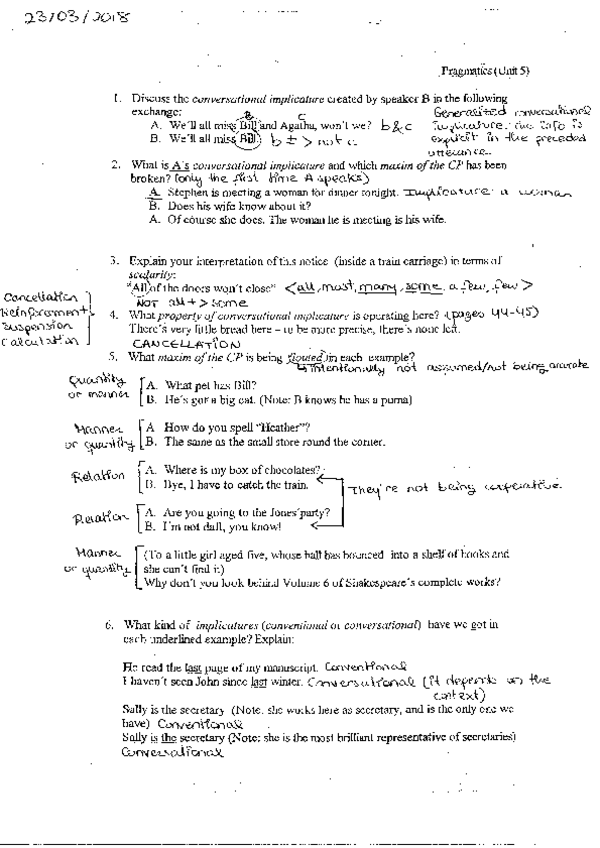 23/03/2018
Pragmatics (Unit 5)
1. Discuss the conversational implicature created by speaker B in the following
exchange:
Generalized conversational
implicature: the info is
explicit in the preceded
utterance.
b c
A. We'll all miss Bill and Agatha, won't we? b & c
B. We'll all miss Bill. b + > not c
2. What is A's conversational implicature and which maxim of the CP has been
broken? (only the first time A speaks)
A. Stephen is meeting a woman for dinner tonight. Implicature: a woman
B. Does his wife know about it?
A. Of course she does. The woman he is meeting is his wife.
3. Explain your interpretation of this notice (inside a train carriage) in terms of
scalarity:
"All of the doors won't close" <all, most, many, some, a few, few>
NOT all + > some
Cancellation
Reinforcement
Suspension
Calculation
4. What property of conversational implicature is operating here? (pages 44-45)
There's very little bread here – to be more precise, there's none left.
CANCELLATION
5. What maxim of the CP is being flouted in each example?
Intentionally not assumed/not being accurate
Quantity
or manner
A. What pet has Bill?
B. He's got a big cat. (Note: B knows he has a puma)
Manner
or quantity
A How do you spell "Heather"?
B. The same as the small store round the corner.
Relation
A. Where is my box of chocolates?
B. Bye, I have to catch the train.
They're not being cooperative.
Relation
A. Are you going to the Jones' party?
B. I'm not daft, you know!
Manner
or quantity
(To a little girl aged five, whose ball has bounced into a shelf of books and
she can't find it)
Why don't you look behind Volume 6 of Shakespeare's complete works?
6. What kind of implicatures (conventional or conversational) have we got in
each underlined example? Explain:
He read the last page of my manuscript. Conventional
I haven't seen John since last winter. Conversational (it depends on the
context)
Sally is the secretary (Note: she works here as secretary, and is the only one we
have) Conventional
Sally is the secretary (Note: she is the most brilliant representative of secretaries)
Conversational